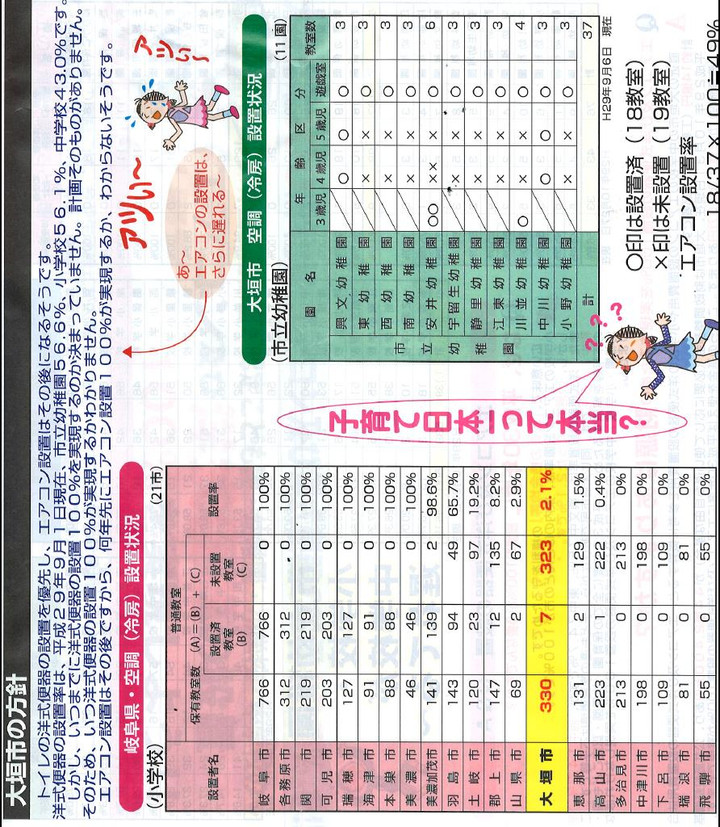 大垣市の方針
トイレの洋式便器の設置を優先し、エアコン設置はその後になるそうです。
洋式便器の設置率は、平成29年9月1日現在、市立幼稚園56.6%、小学校56.1%、中学校43.0%です。
しかし、いつまでに洋式便器の設置100%を実現するのか決まっていません。計画そのものがありません。
そのため、いつ洋式便器の設置100%が実現するかわかりません。
エアコン設置はその後ですから、何年先にエアコン設置100%が実現するか、わからないそうです。
岐阜県・空調（冷房）設置状況
(小学校) (21市)
設置者名 普通教室 設置率
保有教室数 (A)=(B)+(C) 設置済教室(B) 未設置教室(C)
岐阜市 766 766 0 100%
各務原市 312 312 0 100%
関市 219 219 0 100%
可児市 203 203 0 100%
瑞穂市 127 127 0 100%
海津市 91 91 0 100%
本巣市 88 88 0 100%
美濃市 46 46 0 100%
美濃加茂市 141 139 2 98.6%
羽島市 143 94 49 65.7%
土岐市 120 23 97 19.2%
郡上市 147 12 135 8.2%
山県市 69 2 67 2.9%
大垣市 330 7 323 2.1%
恵那市 131 2 129 1.5%
高山市 223 1 222 0.4%
多治見市 213 0 213 0%
中津川市 198 0 188 0%
下呂市 109 0 109 0%
瑞浪市 81 0 81 0%
飛騨市 55 0 55 0%
子育て日本一って本当？
???
アツい〜
アツい〜
あ〜
エアコンの設置は、
さらに遅れる〜
大垣市 空調（冷房）設置状況
(市立幼稚園) (11園)
園名 年齢区分 教室数
3歳児 4歳児 5歳児 遊戯室
市立幼稚園
興文幼稚園 ○ ○ ○ 3
東幼稚園 × × ○ 3
西幼稚園 × × ○ 3
南幼稚園 × × ○ 3
安井幼稚園 ○○ ×× × ○ 6
宇留生幼稚園 × × ○ 3
静里幼稚園 × × ○ 3
江東幼稚園 × × ○ 3
川並幼稚園 ○ × × ○ 4
中川幼稚園 ○ ○ ○ 3
小野幼稚園 × × ○ 3
計 37
H29年9月6日 現在
○印は設置済（18教室）
×印は未設置（19教室）
エアコン設置率
18/37×100≒49%